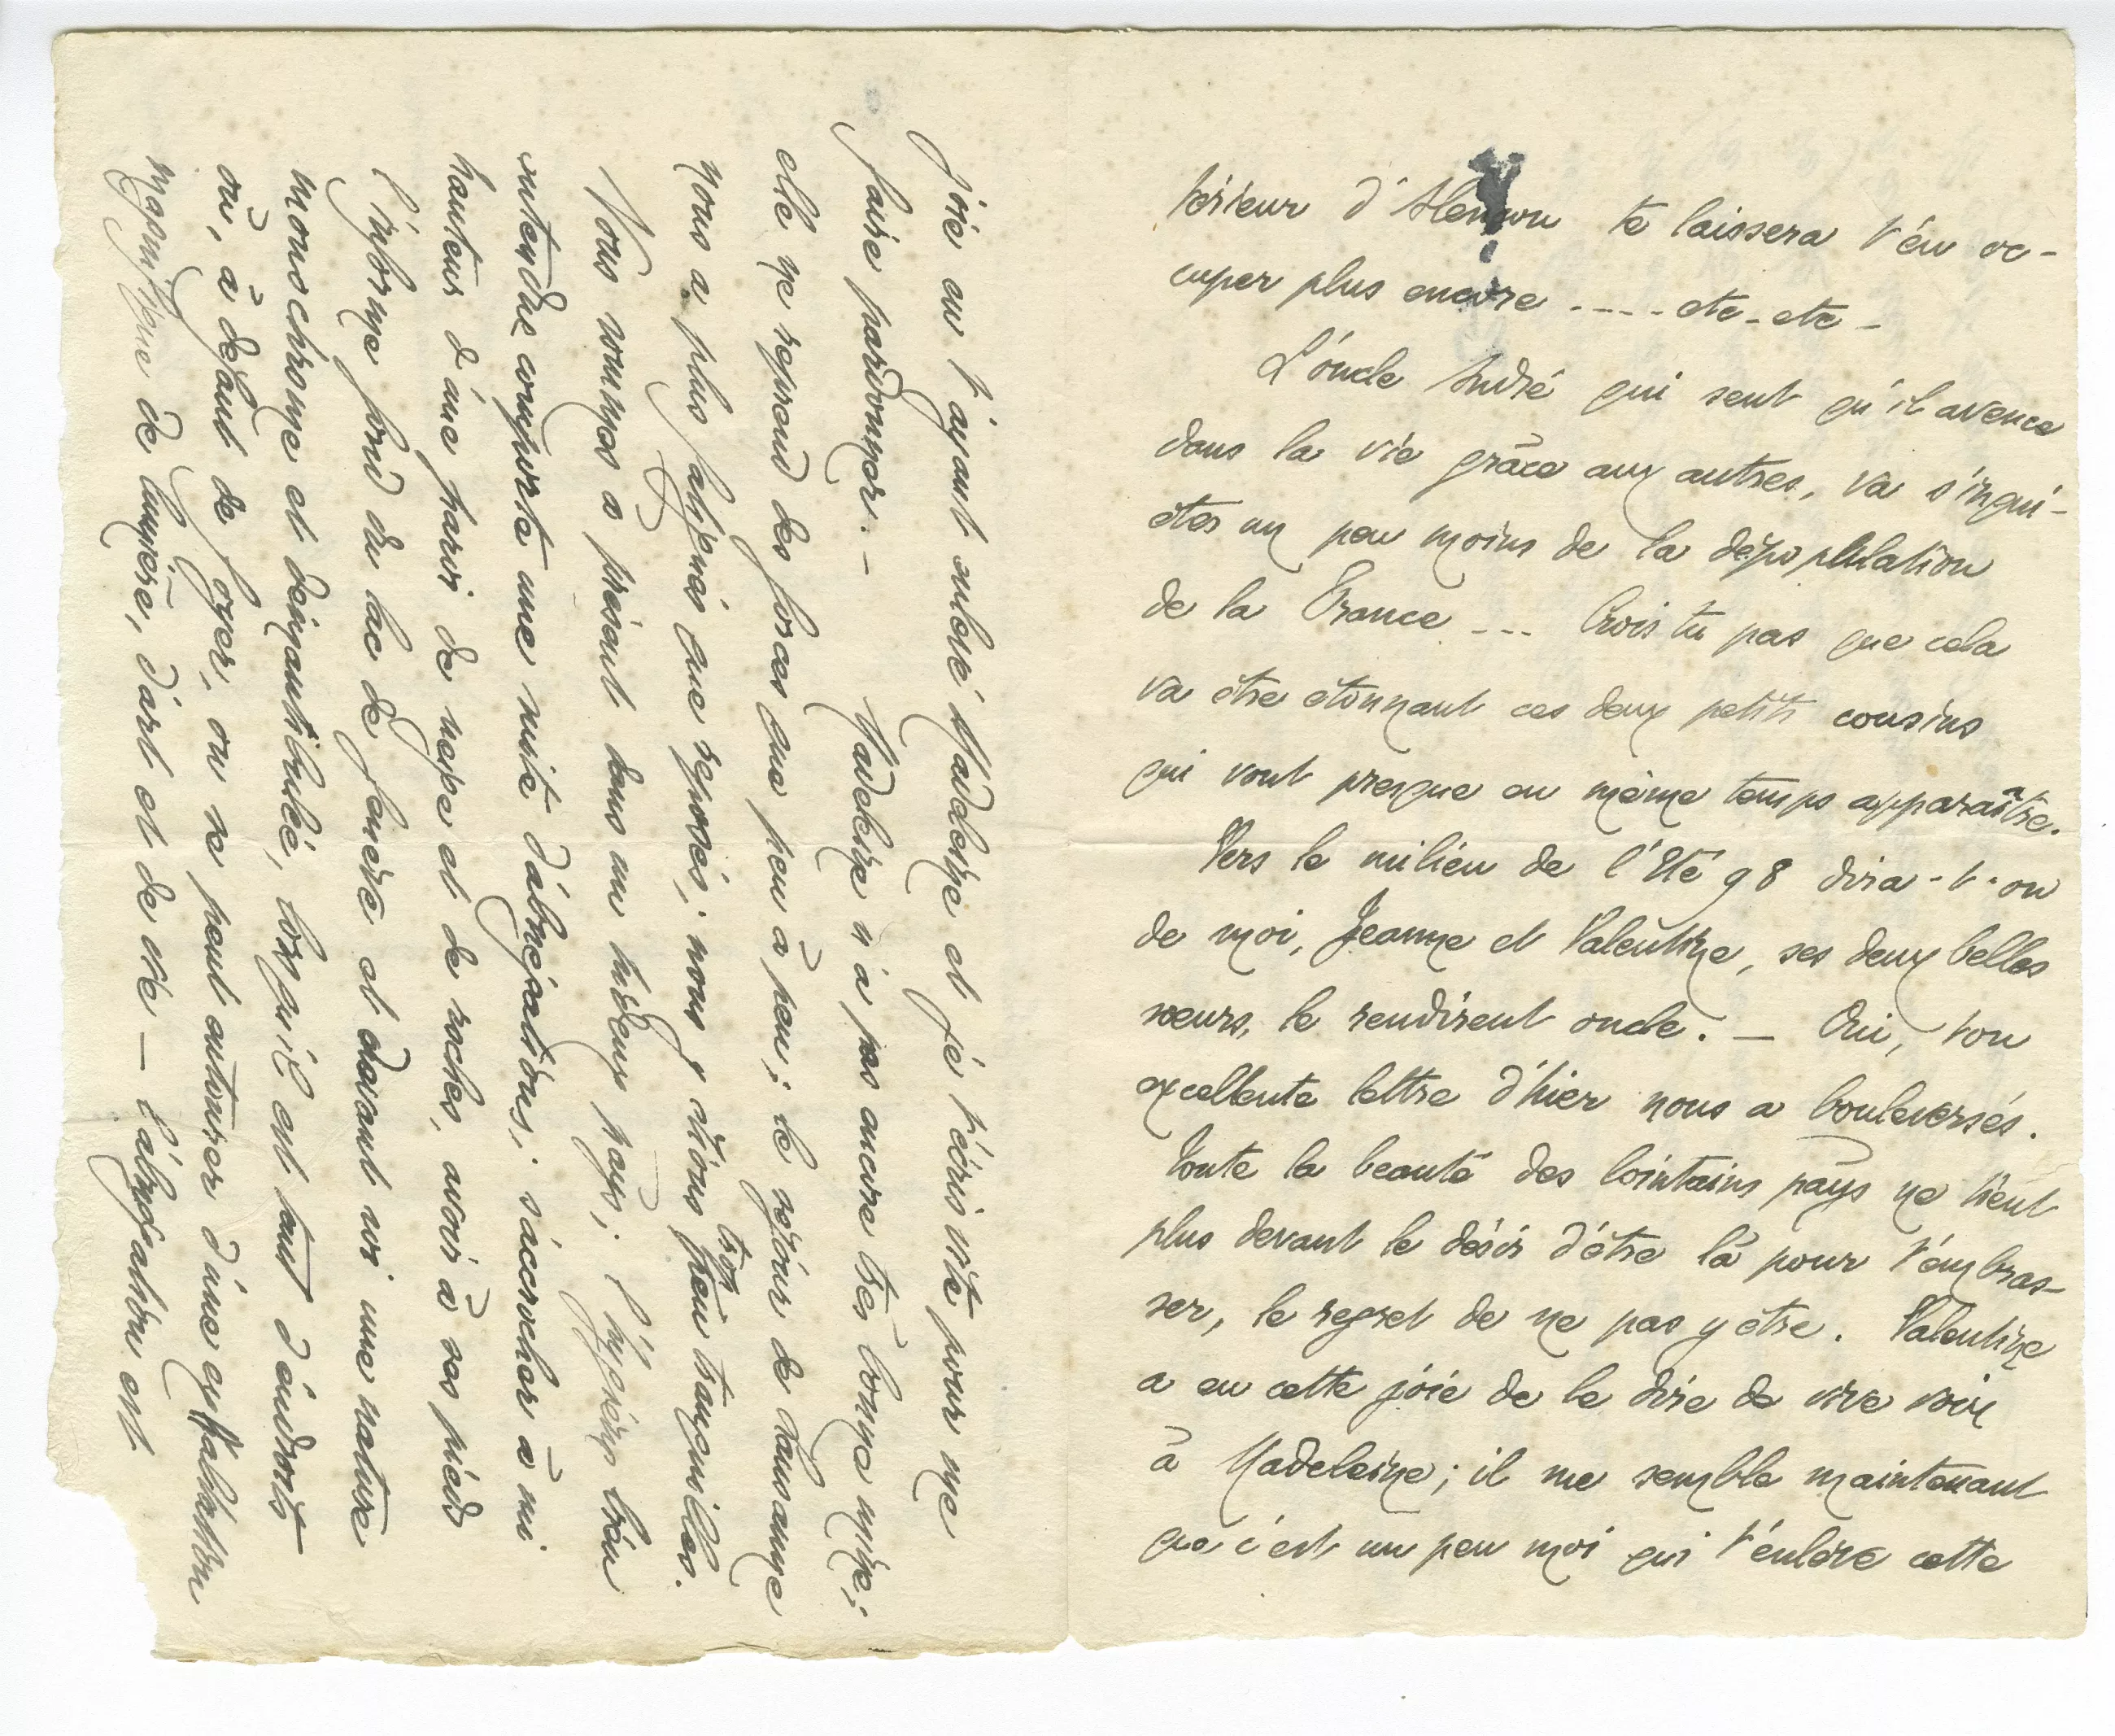 térieur d'Alençon te laissera t'en oc-
cuper plus encore ---- etc - etc -
L'oncle André qui sent qu'il avance
dans la vie grâce aux autres, va s'inqui-
éter un peu moins de la dépopulation
de la France --- Crois tu pas que cela
va être étonnant ces deux petits cousins
qui vont presque en même temps apparaître.
Vers le milieu de l'Eté 98 dira-t-on
de moi, Jeanne et Valentine, ses deux belles
sœurs, le rendirent oncle. — Oui, ton
excellente lettre d'hier nous a bouleversés.
Toute la beauté des lointains pays ne tient
plus devant le désir d'être là pour t'embras-
ser, le regret de ne pas y être. Valentine
a eu cette joie de le dire de vive voix
à Madeleine; il me semble maintenant
que c'est un peu moi qui t'enlève cette
joie en t'ayant enlevé Madeleine et je t'écris vite pour me
faire pardonner. — Madeleine n'a pas encore très bonne mine;
elle ne reprend des forces que peu à peu; le séjour de Lausanne
nous a plus fatigués que reposés; nous y étions trop peu tranquilles.
Nous sommes à présent dans un hideux pays; l'hygiène bien
entendue comporte une suite d'abnégations; s'accrocher à mi
hauteur d'une paroi de neige et de roches, avoir à ses pieds
l'informe fond du lac de         et devant soi une nature
monochrome et         , lorsqu'il est tant d'endroits
où, à défaut de foyer, on se peut entourer d'une exaltation
magnifique de lumière, d'art et de vie — l'abnégation est